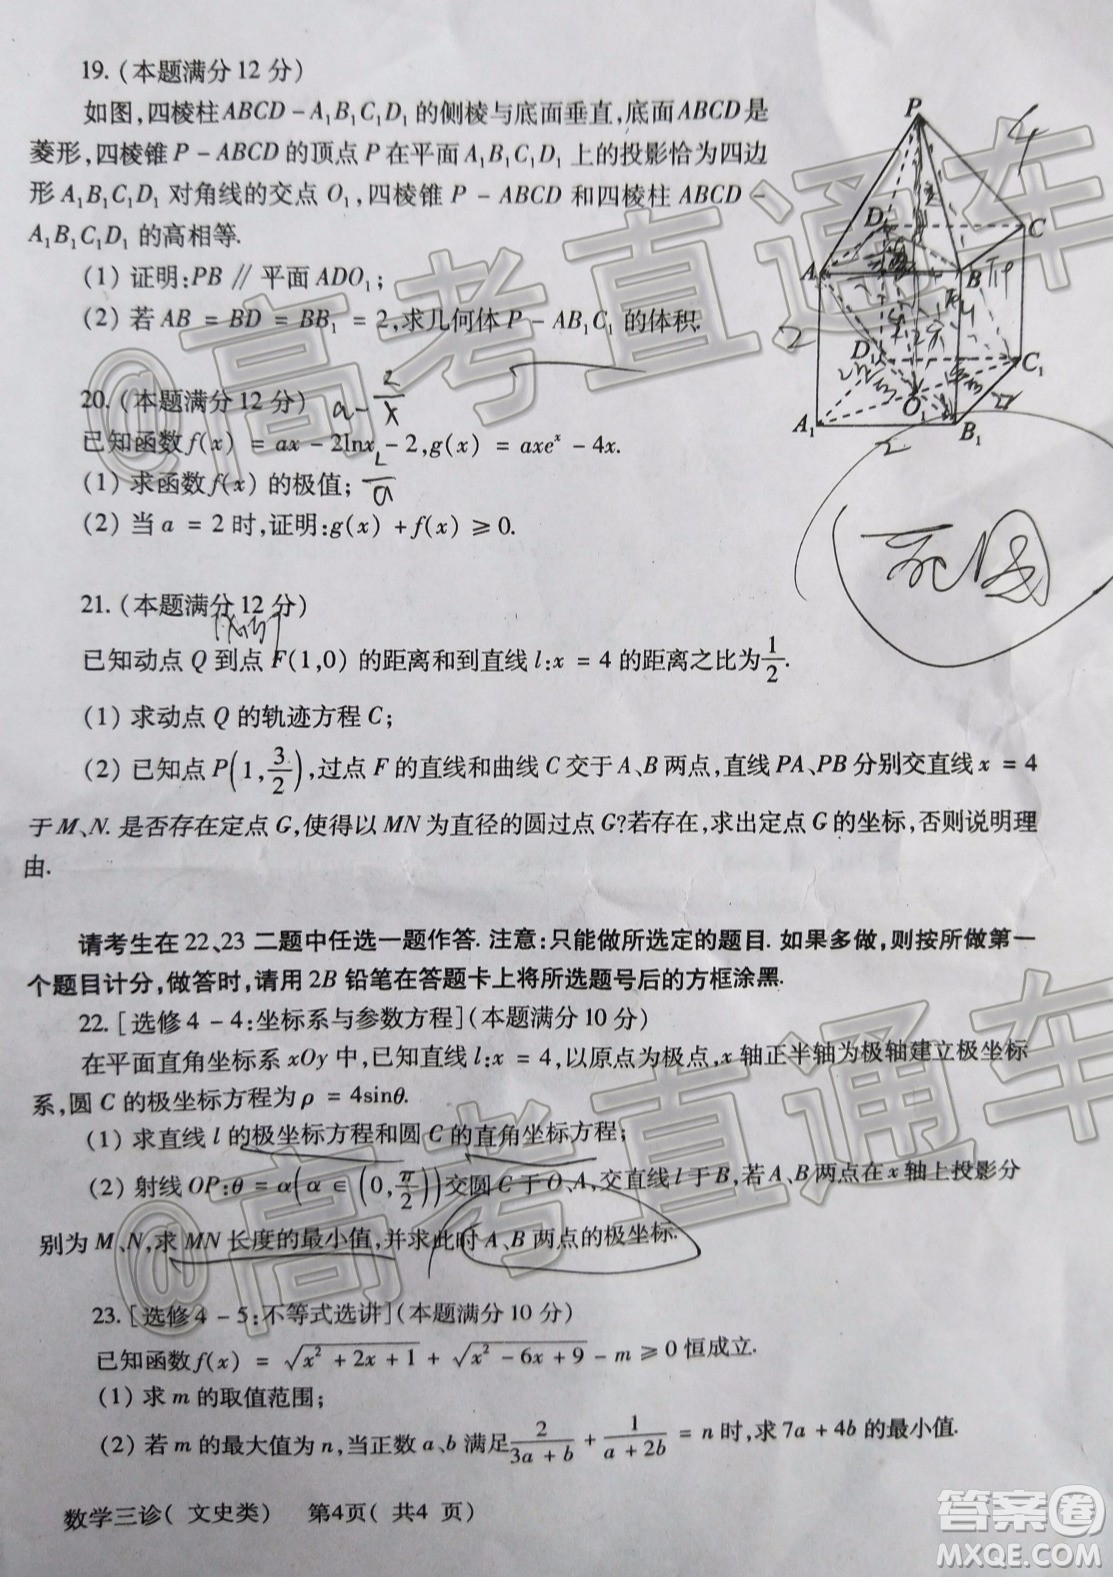 19. (本题满分12分)
如图,四棱柱ABCD-A₁B₁C₁D₁的侧棱与底面垂直,底面ABCD是
菱形,四棱锥P-ABCD的顶点P在平面A₁B₁C₁D₁上的投影恰为四边
形A₁B₁C₁D₁对角线的交点O₁,四棱锥P-ABCD和四棱柱ABCD-
A₁B₁C₁D₁的高相等.
(1)证明:PB∥平面ADO₁;
(2)若AB=BD=BB₁=2,求几何体P-AB₁C₁的体积.
P
D
C
A
B
D₁
C₁
O₁
A₁
B₁
4
2
2
20. (本题满分12分) a-2/x
已知函数f(x)=ax-2lnx-2,g(x)=axeˣ-4x.
(1)求函数f(x)的极值; 2/a
(2)当a=2时,证明:g(x)+f(x)≥0.
21. (本题满分12分)
已知动点Q到点F(1,0)的距离和到直线l:x=4的距离之比为1/2.
(1)求动点Q的轨迹方程C;
(2)已知点P(1,3/2),过点F的直线和曲线C交于A、B两点,直线PA、PB分别交直线x=4
于M、N.是否存在定点G,使得以MN为直径的圆过点G?若存在,求出定点G的坐标,否则说明理
由.
请考生在22、23二题中任选一题作答.注意:只能做所选定的题目.如果多做,则按所做第一
个题目计分,做答时,请用2B铅笔在答题卡上将所选题号后的方框涂黑.
22. [选修4-4:坐标系与参数方程](本题满分10分)
在平面直角坐标系xOy中,已知直线l:x=4,以原点为极点,x轴正半轴为极轴建立极坐标
系,圆C的极坐标方程为ρ=4sinθ.
(1)求直线l的极坐标方程和圆C的直角坐标方程;
(2)射线OP:θ=α(α∈(0,π/2))交圆C于O、A,交直线l于B,若A、B两点在x轴上投影分
别为M、N,求MN长度的最小值,并求此时A、B两点的极坐标.
23. [选修4-5:不等式选讲](本题满分10分)
已知函数f(x)=√(x²+2x+1)+√(x²-6x+9)-m≥0恒成立.
(1)求m的取值范围;
(2)若m的最大值为n,当正数a、b满足2/(3a+b)+1/(a+2b)=n时,求7a+4b的最小值.
数学三诊(文史类) 第4页(共4页)
@高考直通车
@高考直通车
答案圈
MXQE.COM